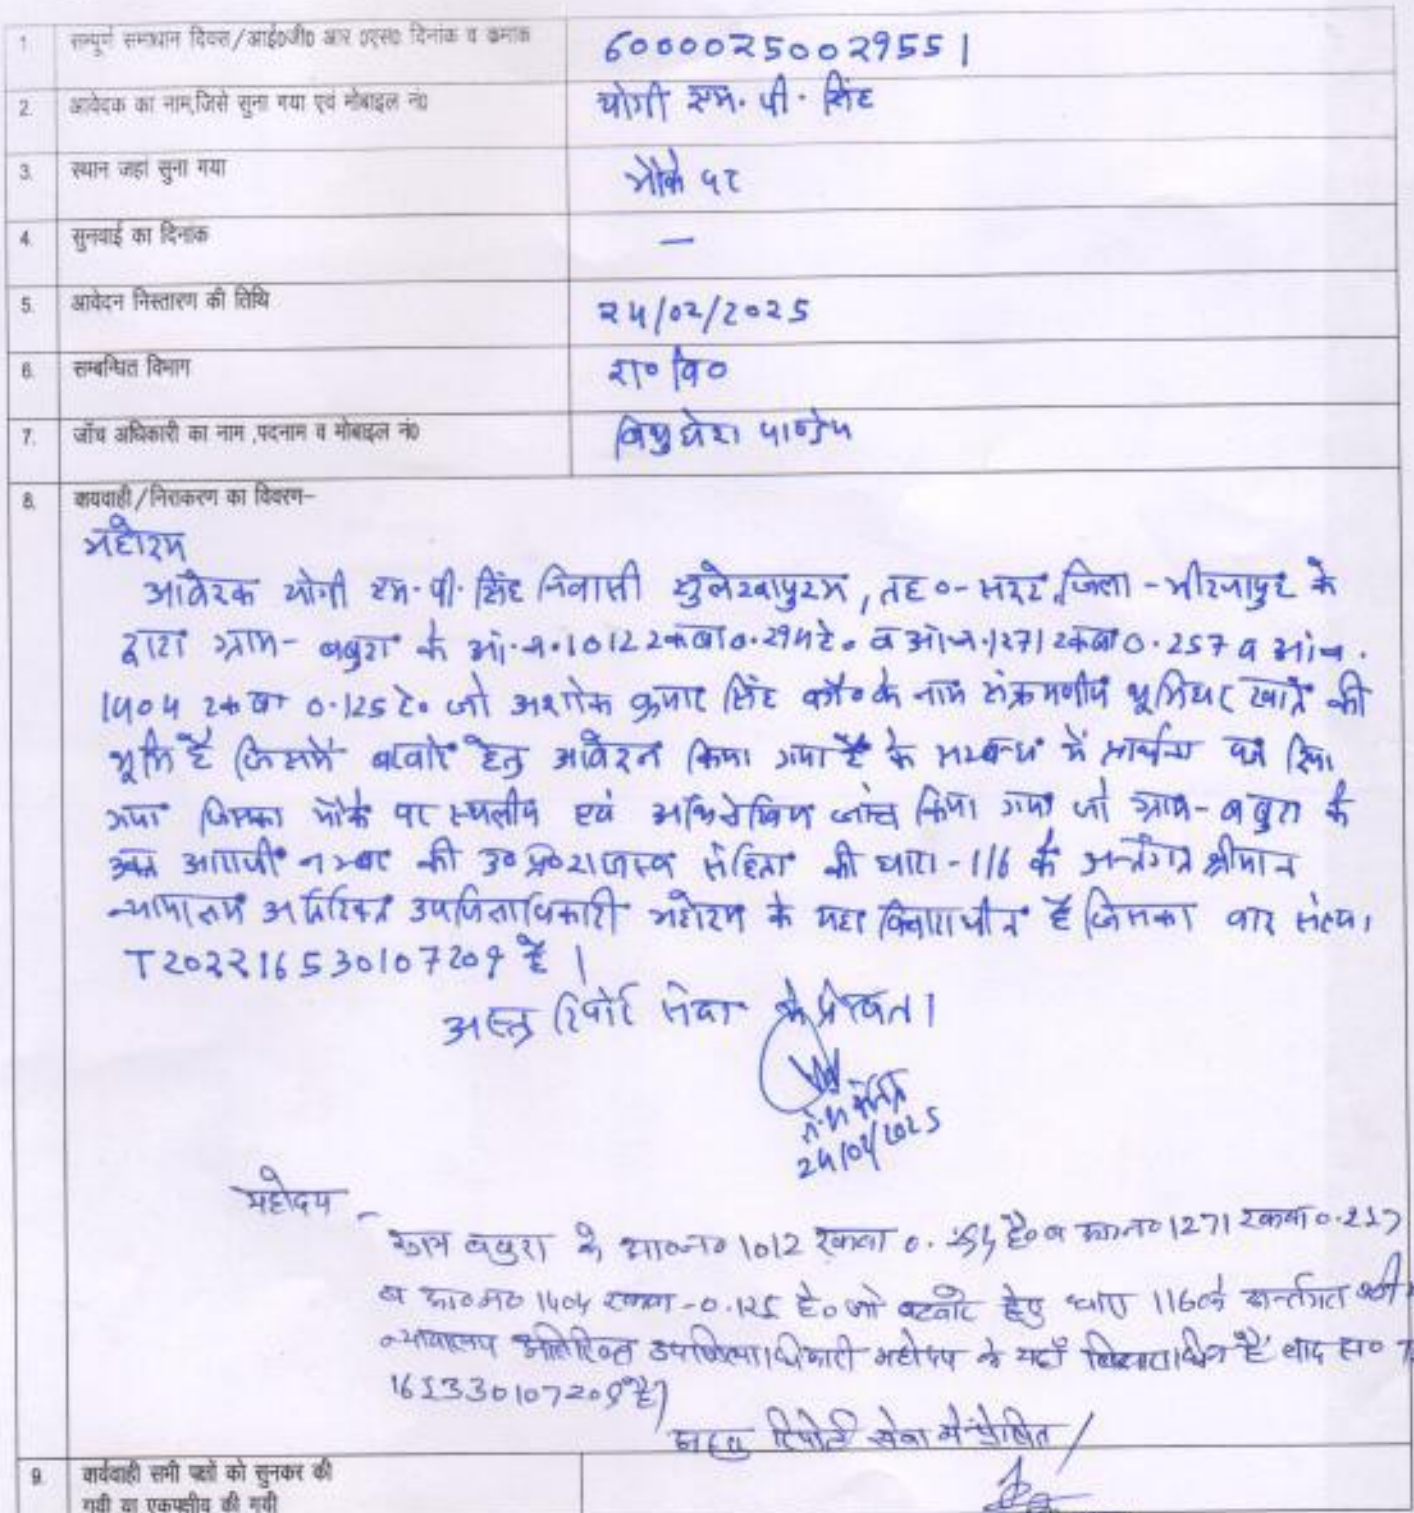 1. सम्पूर्ण समाधान दिवस/आई0जी0 आर 0एस0 दिनांक व क्रमांक 60000250029551
2. आवेदक का नाम,जिसे सुना गया एवं मोबाइल नं0 योगी एम. पी. सिंह
3. स्थान जहां सुना गया मौके पर
4. सुनवाई का दिनांक —
5. आवेदन निस्तारण की तिथि 24/02/2025
6. सम्बन्धित विभाग रा० वि०
7. जॉच अधिकारी का नाम ,पदनाम व मोबाइल नं0 पाण्डेय
8. कायवाही/निराकरण का विवरण–
महोदय
आवेदक योगी एम.पी. सिंह निवासी सुरेखापुरम, तह०-सदर, जिला-मीरजापुर के
द्वारा ग्राम- बबुरा के आ.न.1012 रकबा 0.254हे. व आ.न.1271 रकबा 0.257 व आ.न.
1404 रकबा 0.125 हे. जो अशोक कुमार सिंह वगै० के नाम संक्रमणीय भूमिधर खाते की
भूमि है जिसमें बटवारे हेतु आवेदन किया गया है के सम्बन्ध में प्रार्थना पत्र दिया
गया जिसका मौके पर स्थलीय एवं अभिलेखिय जांच किया गया जो ग्राम-बबुरा के
उक्त आराजी नम्बर की उ०प्र०राजस्व संहिता की धारा-116 के अन्तर्गत श्रीमान
न्यायालय अतिरिक्त उपजिलाधिकारी महोदय के यहा विचाराधीन है जिसका वाद संख्या
T202216530107209 है।
अस्तु रिपोर्ट सेवा में प्रेषित।
24/02/2025
महोदय –
ग्राम बबुरा के आ०न० 1012 रकबा 0. हे० व आ०न० 1271 रकबा
व आ०न० 1404 रकबा-0.125 हे० जो बटवारे हेतु धारा 116 के अन्तर्गत
न्यायालय अतिरिक्त उपजिलाधिकारी महोदय के यहाँ विचाराधीन है वाद स०
है।
अस्तु रिपोर्ट सेवा में प्रेषित
9. कार्यवाही सभी पक्षों को सुनकर की
गयी या एकपक्षीय की गयी